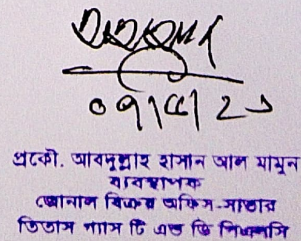 প্রকৌ. আবদুল্লাহ হাসান আল মামুন
ব্যবস্থাপক
জোনাল বিক্রয় অফিস-সাভার
তিতাস গ্যাস টি এন্ড ডি পিএলসি